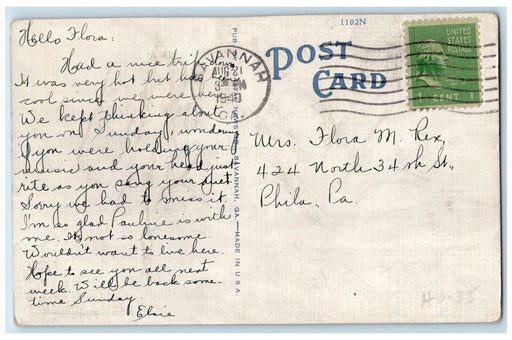 Hello Flora:
Had a nice trip down
It was very hot but
cool since we were here
We kept thinking about
you on Sunday, wondering
if you were holding your
music and your head just
rite as you sang your duet
Sorry we had to miss it.
I'm so glad Pauline is with
me. It's not so lonesome.
Wouldn't want to live here.
Hope to see you all next
week. Will be back some
time Sunday.
Elsie
SAVANNAH, GA.—MADE IN U.S.A.
SAVANNAH
AUG 21
PM
1940
GA.
1102N
POST
CARD
UNITED
STATES
POSTAGE
1
CENT
1
Mrs. Flora M. Rex,
424 North 34th St.,
Phila., Pa.